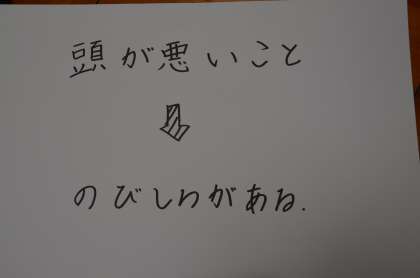 頭が悪いこと
⇩
のびしろがある.